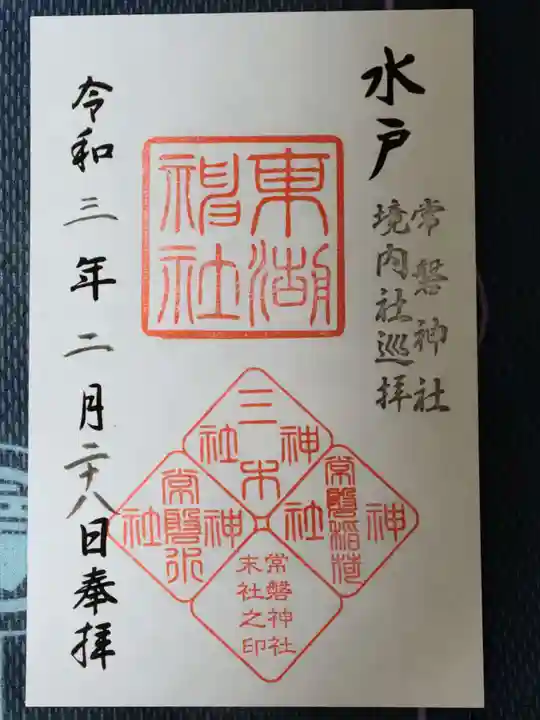 水戸
常磐神社
境内社巡拝
東湖
神社
三木
神社
常磐稲荷
神社
常磐
神社
常磐神社
末社之印
令和三年二月二十八日奉拝